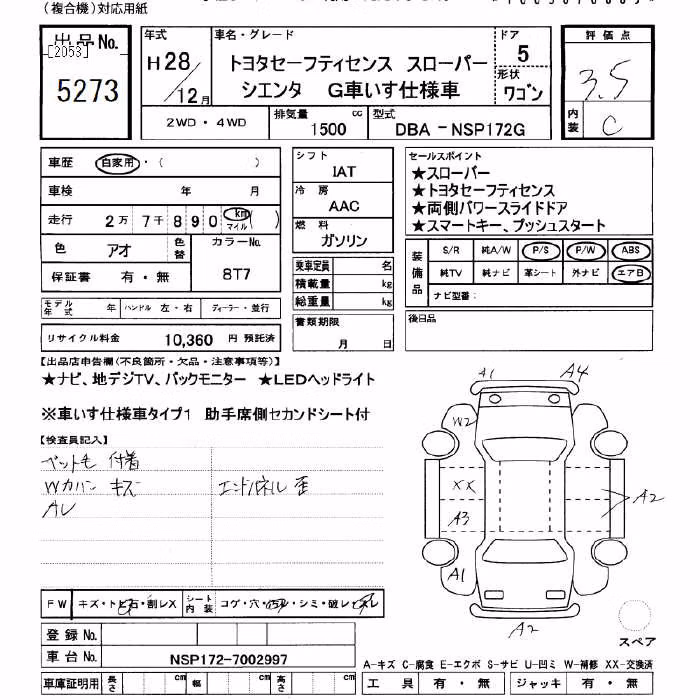 (複合機)対応用紙
出品No.
[2053]
5273
年式
H28/12月
車名・グレード
トヨタセーフティセンス スローパー
シエンタ G車いす仕様車
ドア
5
形状
ワゴン
評価点
3.5
内装
C
2WD・4WD
排気量
1500 cc
型式
DBA-NSP172G
車歴 自家用・( )
車検 年 月
走行 2万7千890 km マイル ( )
色 アオ 色替
カラーNo.
8T7
保証書 有・無
モデル年式 年 ハンドル 左・右 ディーラー・並行
リサイクル料金 10,360 円 預託済
シフト
IAT
冷房
AAC
燃料
ガソリン
乗車定員 名
積載量 kg
総重量 kg
書類期限
月 日
セールスポイント
★スローパー
★トヨタセーフティセンス
★両側パワースライドドア
★スマートキー、プッシュスタート
装備品
S/R 純A/W P/S P/W ABS
純TV 純ナビ 革シート 外ナビ エアB
ナビ型番:
後日品
【出品店申告欄(不良箇所・欠品・注意事項等)】
★ナビ、地デジTV、バックモニター ★LEDヘッドライト
※車いす仕様車タイプ1 助手席側セカンドシート付
【検査員記入】
ペット毛 付着
Wカバー キズ
エンドパネル 歪
AW
A1
A4
W2
XX
A3
A2
A1
A2
FW キズ・トビ石・割レX シート内装 コゲ・穴・汚レ・シミ・破レ・スレ
登録No.
車台No. NSP172-7002997
車庫証明用 長さ cm 幅 cm 高さ cm
スペア
A-キズ C-腐食 E-エクボ S-サビ U-凹ミ W-補修 XX-交換済
工具 有・無 ジャッキ 有・無